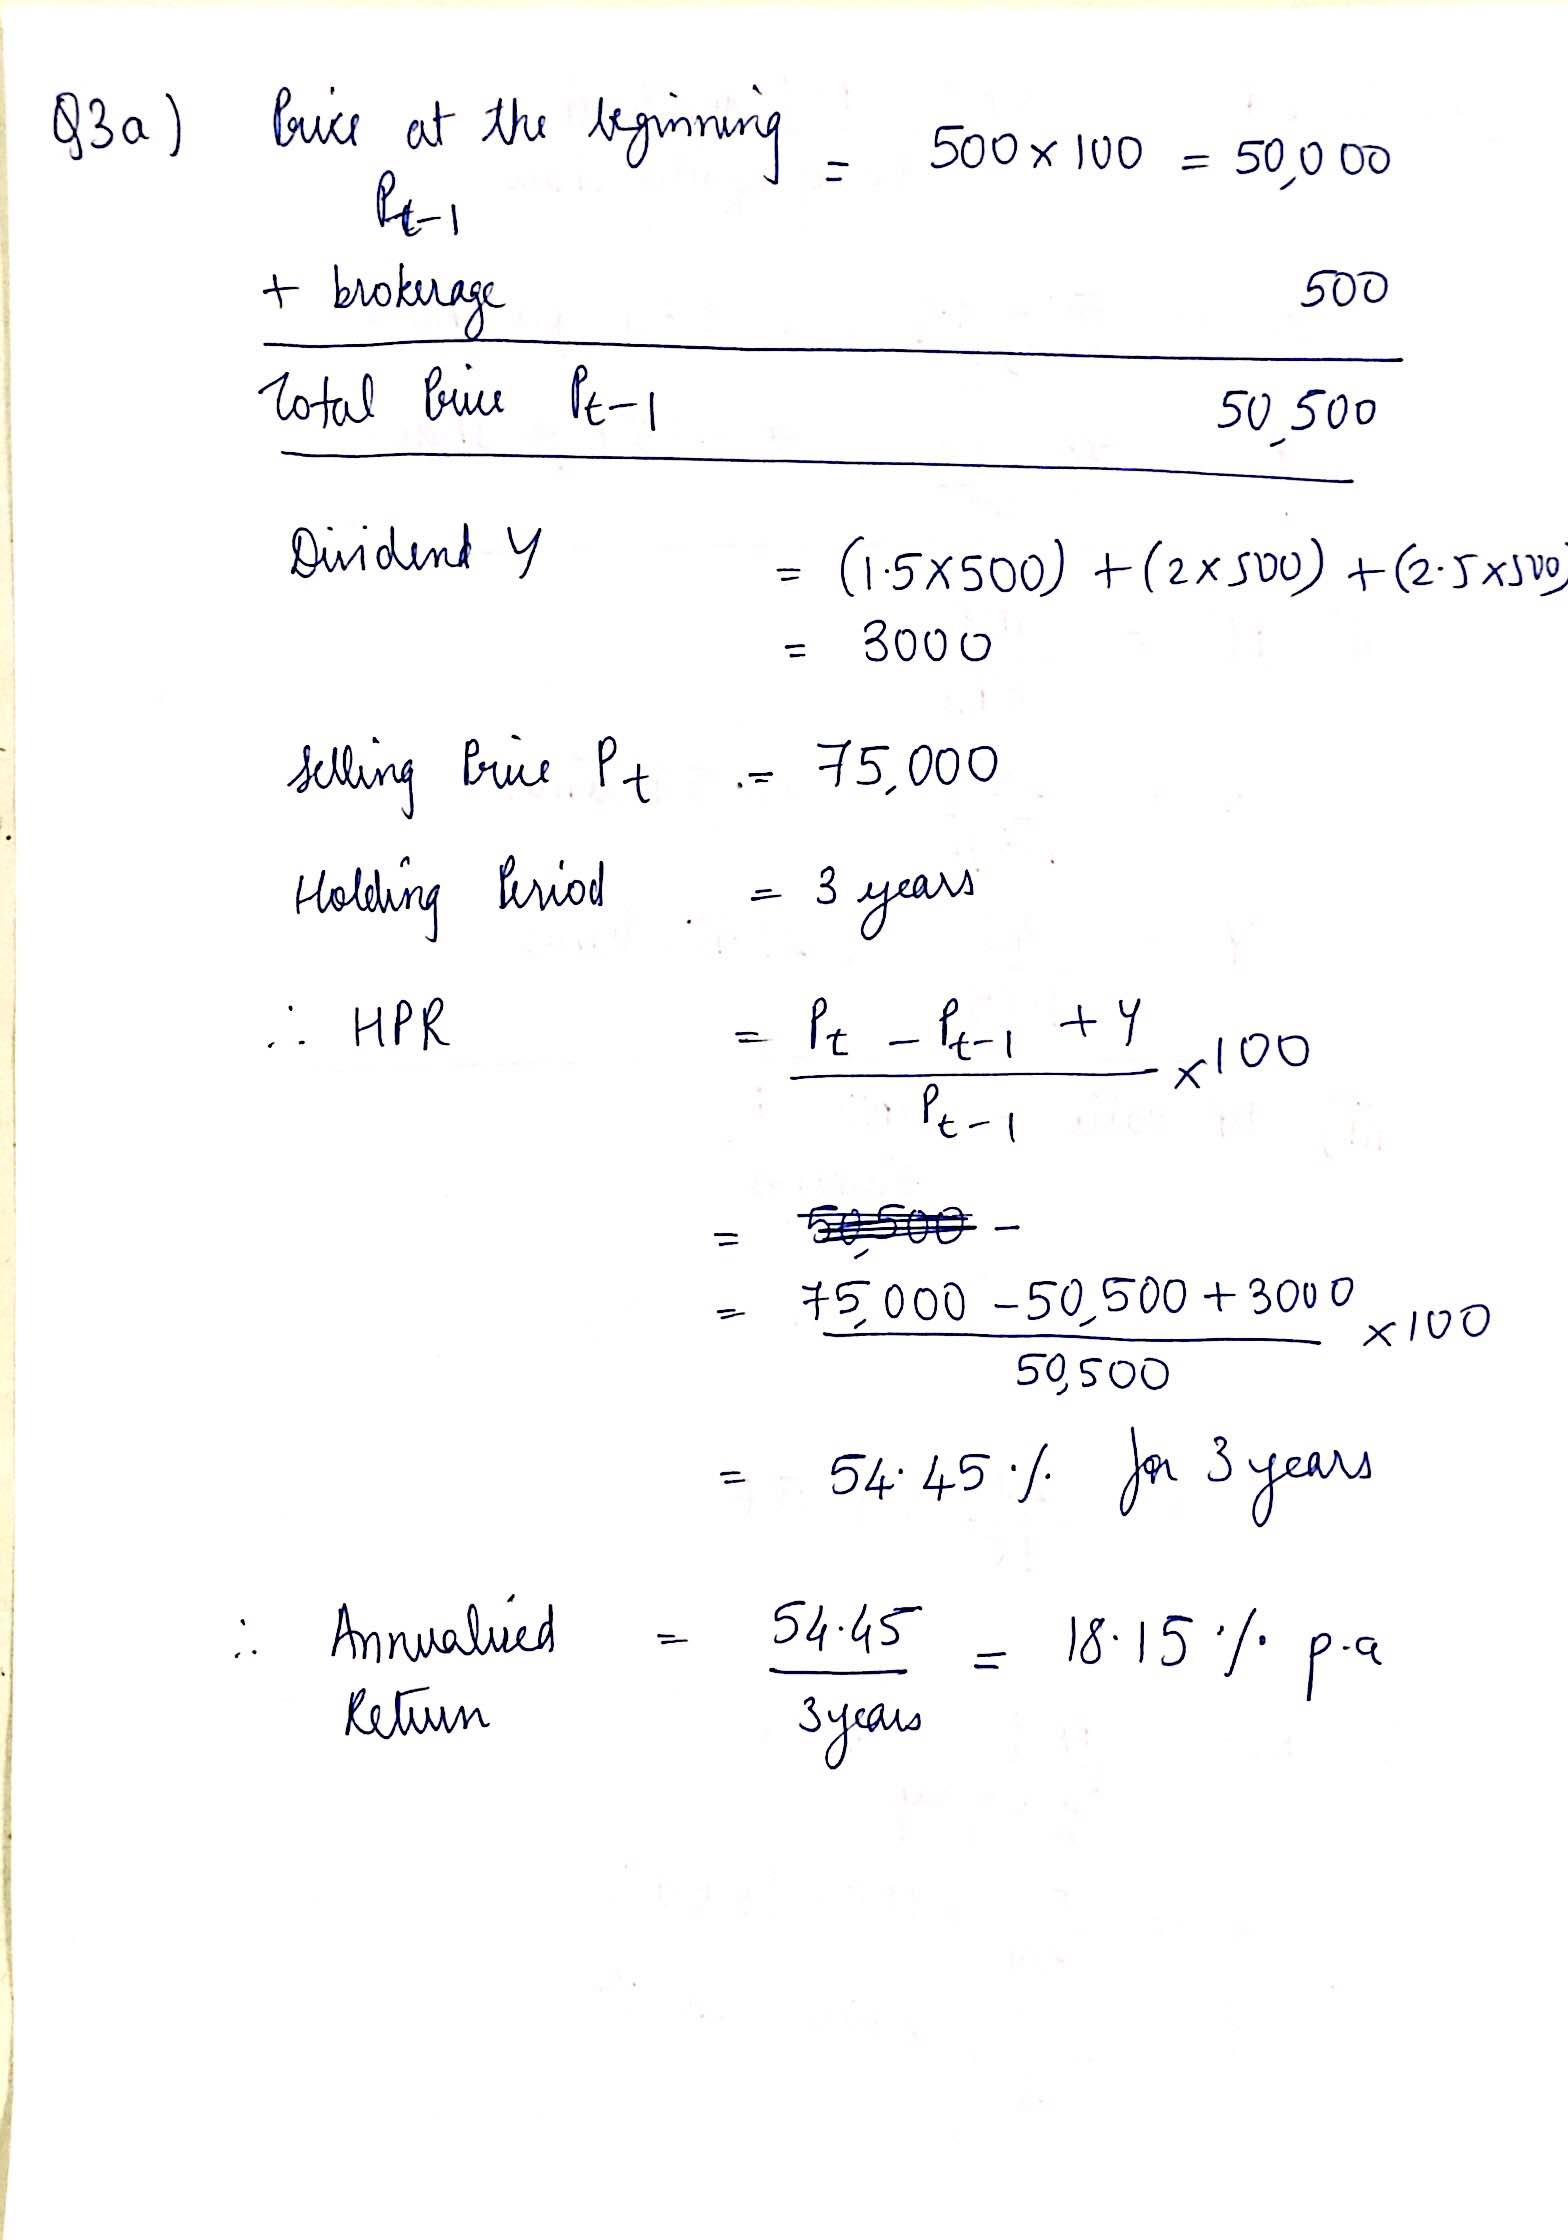 Q3a) Price at the beginning = 500 x 100 = 50,000
Pt-1
+ brokerage 500
Total Price Pt-1 50,500
Dividend Y = (1.5x500) + (2x500) + (2.5x500)
= 3000
Selling Price Pt = 75,000
Holding Period = 3 years
∴ HPR = Pt - Pt-1 + Y x100
Pt-1
= 50,500 -
= 75,000 - 50,500 + 3000 x100
50,500
= 54.45 % for 3 years
∴ Annualised = 54.45 = 18.15 % p.a
Return 3 years